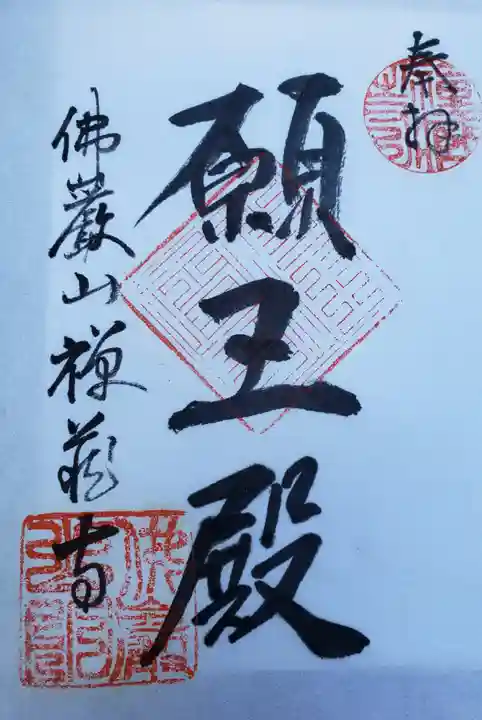 奉拝
願王殿
佛巖山禅藏寺